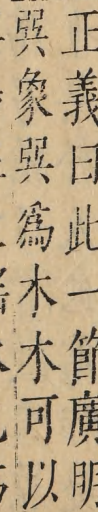 正義曰此一節廣明
巽象巽為木木可以